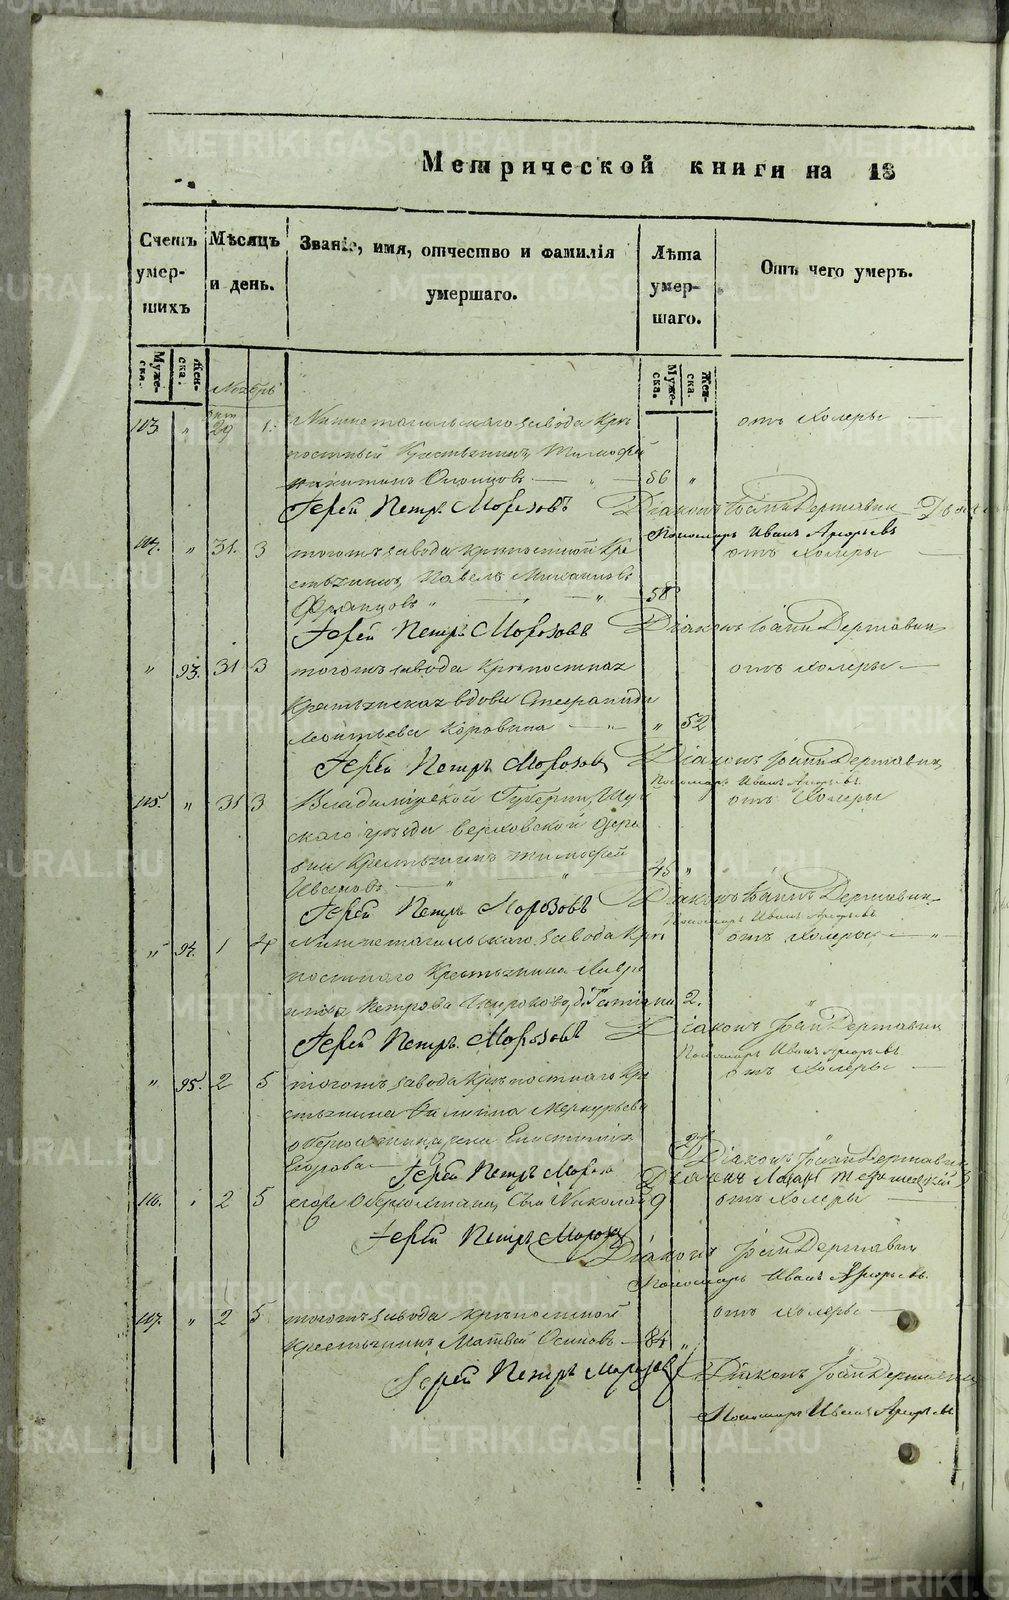 Метрической книги на 18
Счетъ умер- шихъ
Мѣсяцъ и день.
Званіе, имя, отчество и фамилія умершаго.
Лѣта умер- шаго.
Отъ чего умеръ.
Муже- ска. Жен- ска.
Муже- ска. Жен- ска.
Ноябрь
103 " 29 1. Нижнетагильскаго завода Крѣ отъ холеры
постный Крестьянинъ Тимофей
Никитинъ 56 "
Іерей Петръ Морозовъ Діаконъ Іоаннъ Державин
Пономарь Иванъ Арефьевъ
104. " 31. 3 тогожъ завода крѣпостной Кре отъ холеры
стьянинъ Павелъ Михаиловъ
Французовъ " 58
Іерей Петръ Морозовъ Діаконъ Іоаннъ Державин
" 93. 31 3 тогожъ завода Крѣпостная отъ холеры
Крестьянская вдова Стефанида
Леонтьева Коровина " 52
Іерей Петръ Морозовъ Діаконъ Іоаннъ Державин
Пономарь Иванъ Арефьевъ
105. " 31 3 Владимірской Губерніи, Шуй отъ холеры
скаго уѣзда Верховской
Крестьянинъ Тимофей
Ивановъ 45 "
Іерей Петръ Морозовъ Діаконъ Іоаннъ Державин
Пономарь Иванъ Арефьевъ
" 94. 1 4 Нижнетагильскаго завода Крѣ отъ холеры
постнаго Крестьянина Лавре
Петрова д. Татіана 2.
Іерей Петръ Морозовъ Діаконъ Іоан Державин
Пономарь Иванъ Арефьевъ
" 95. 2 5 тогожъ завода Крѣпостнаго Кре отъ холеры
стьянина Меркурьева
Егорова
Іерей Петръ Морозо Діаконъ Іоан Державин
Діаконъ
106. " 2 5 Сынъ Николай 9 отъ холеры
Іерей Петръ Морозовъ Діаконъ Іоан Державин
Пономарь Иванъ Арефьевъ.
107. " 2 5 тогожъ завода крѣпостной отъ холеры
Крестьянинъ Матвей Осиповъ 84 "
Іерей Петръ Морозовъ Діаконъ Іоан Державин
Пономарь Иванъ Арефьевъ
METRIKI.GASO-URAL.RU